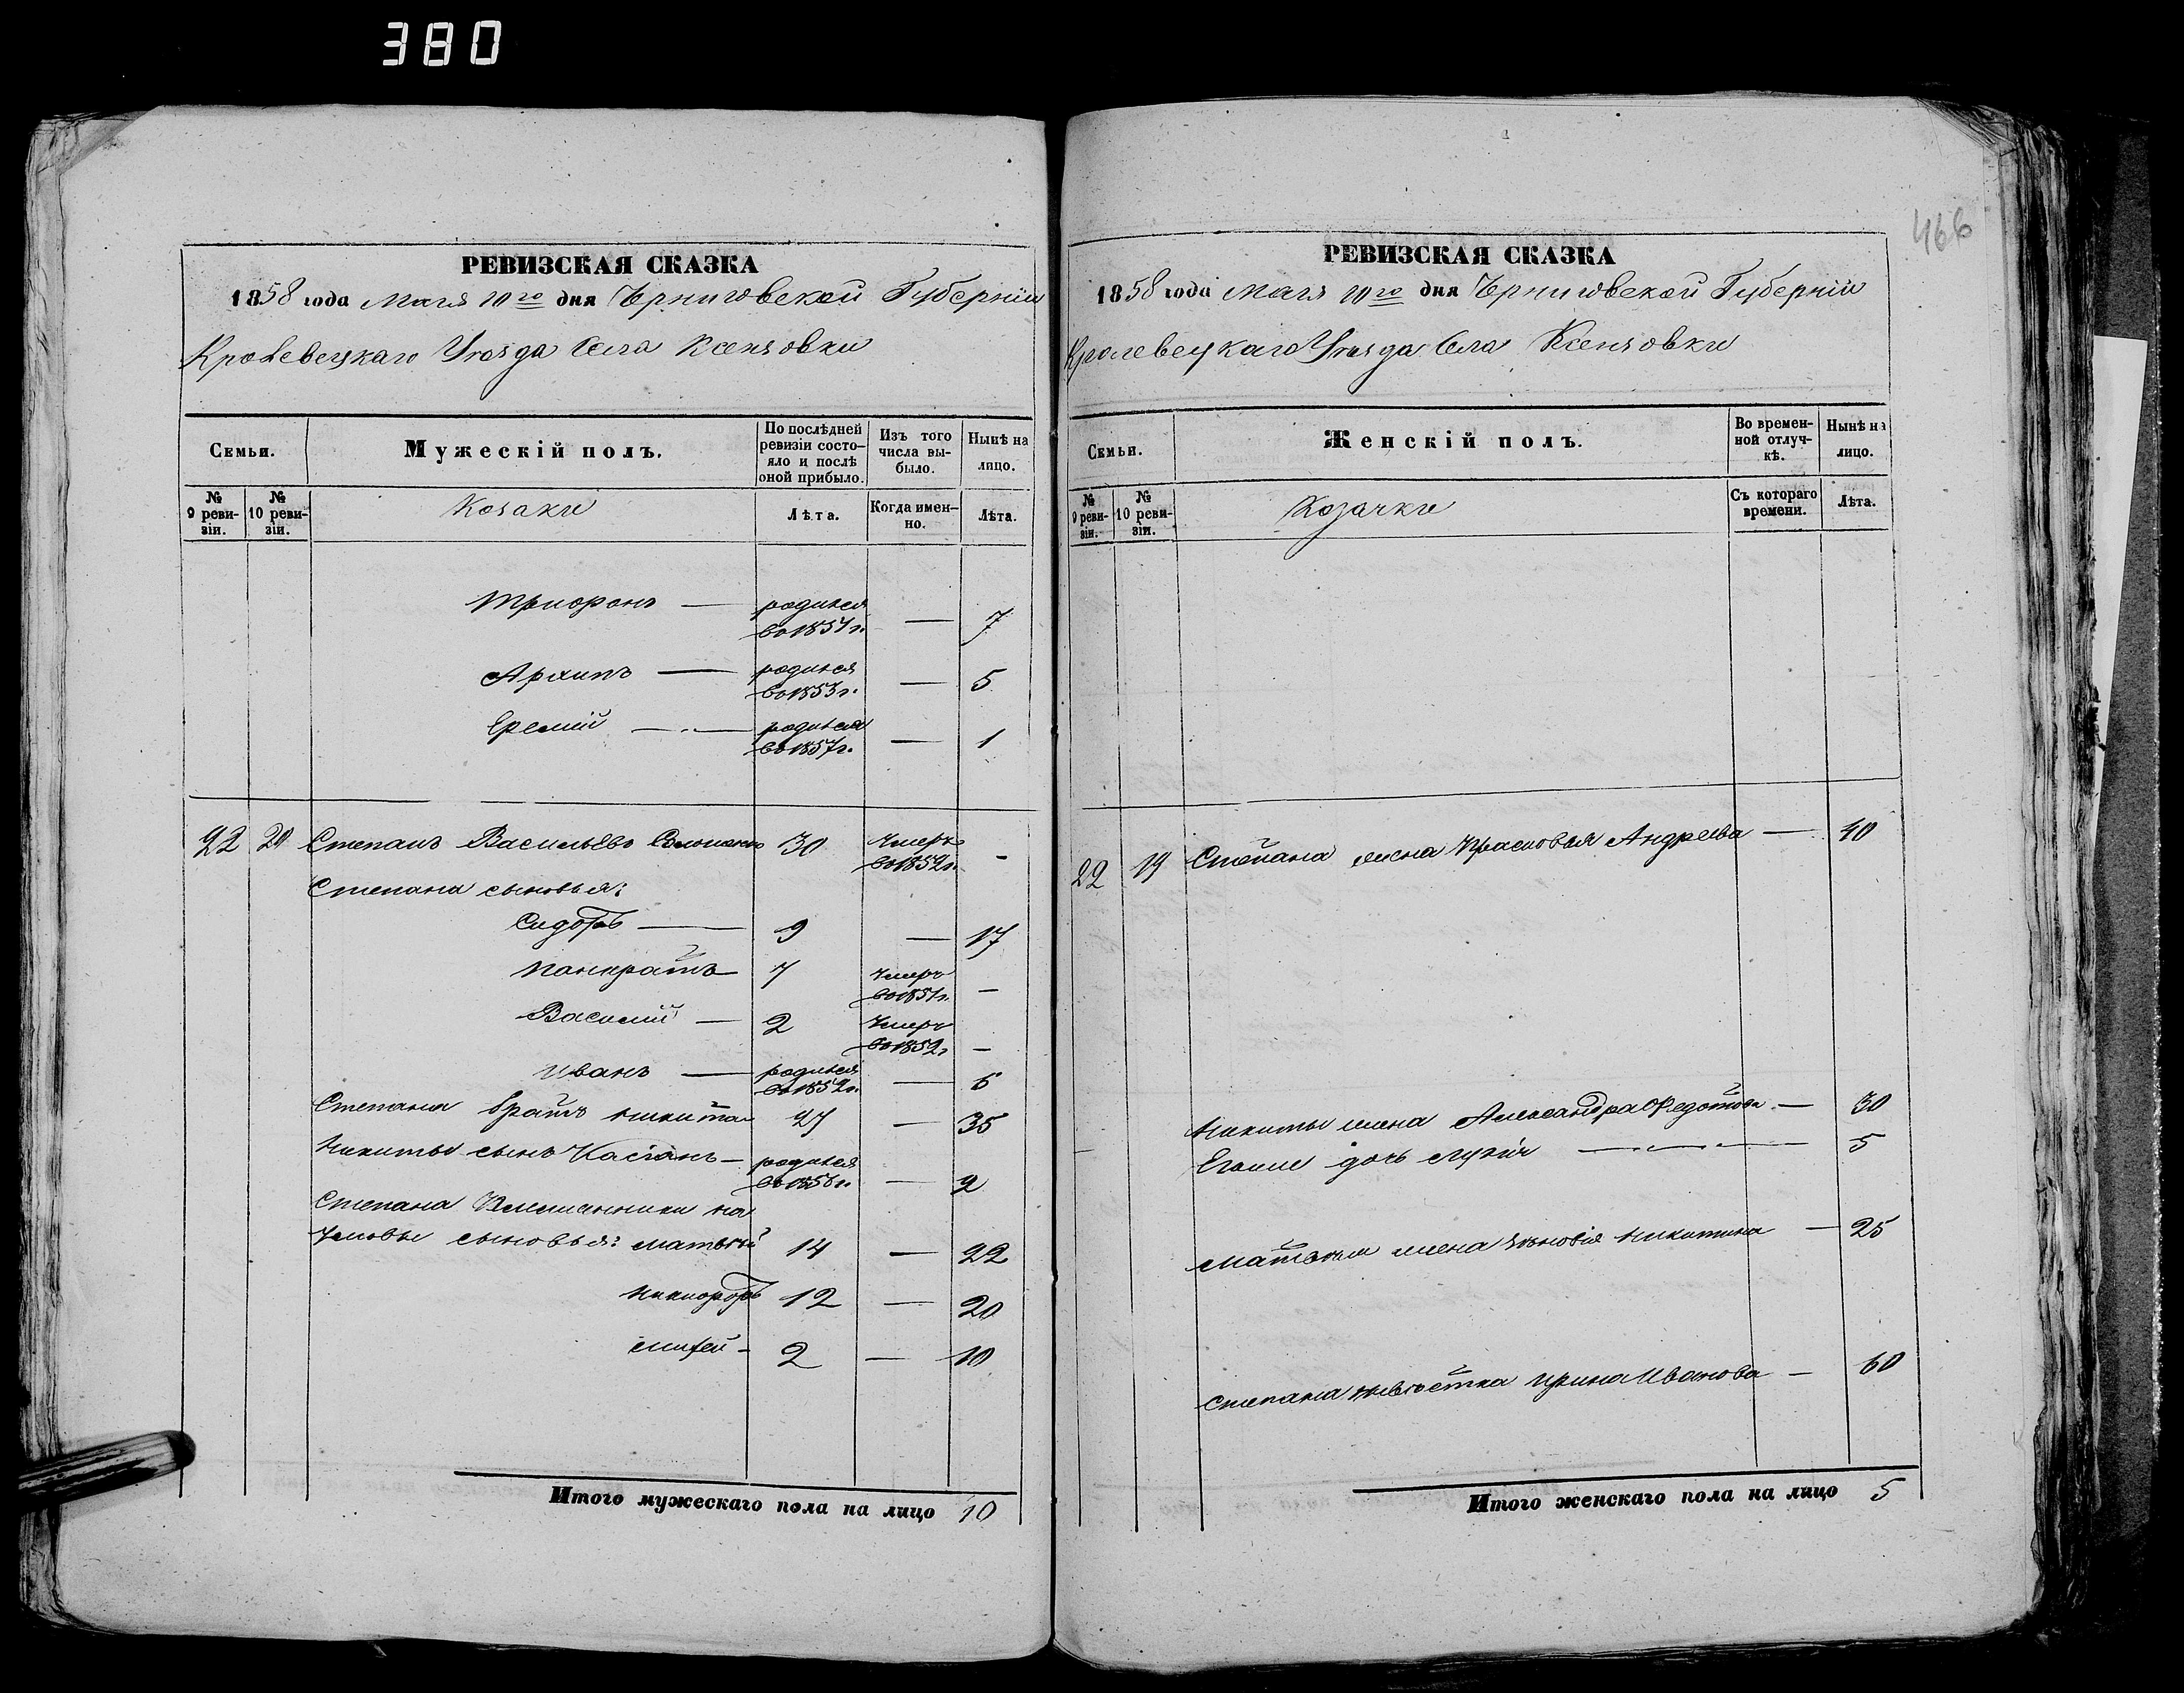 380
466
РЕВИЗСКАЯ СКАЗКА
1858 года Мая 10го дня Черниговской Губерніи
Кролевецкаго Уезда Села Ксензовки
Семьи.
Мужескій полъ.
По послѣдней ревизіи состояло и послѣ оной прибыло.
Изъ того числа выбыло.
Нынѣ на лицо.
№ 9 ревизіи.
№ 10 ревизіи.
Козаки
Лѣта.
Когда именно.
Лѣта.
Трифонъ — родился во 1851 г. — 7
Архипъ — родился во 1853 г. — 5
Еремій — родился во 1857 г. — 1
22 20 Степанъ Васильевъ 30 Умеръ во 1852 г. -
Степана сыновья:
Сидоръ — 9 — 17
Панкратъ — 7 Умеръ во 1851 г. —
Василий — 2 Умеръ во 1852 г. —
Иванъ — родился во 1852 г. — 6
Степана братъ Никита 27 — 35
Никиты сынъ Касіанъ — родился во 1856 г. — 2
Степана Племянники На
умовы сыновья: Матвѣй 14 — 22
Никифоръ 12 — 20
Михей - 2 — 10
Итого мужескаго пола на лицо 10
РЕВИЗСКАЯ СКАЗКА
1858 года Мая 10го дня Черниговской Губерніи
Кролевецкаго Уезда Села Ксензовки
Семьи.
Женскій полъ.
Во временной отлучкѣ.
Нынѣ на лицо.
№ 9 ревизіи.
№ 10 ревизіи.
Козачки
Съ котораго времени.
Лѣта.
22 19 Степана жена Андреева — 40
Никиты жена Александра Федотова — 30
дочь — 5
жена Зѣновія Никитина — 25
Степана невѣстка Ирина Иванова — 60
Итого женскаго пола на лицо 5